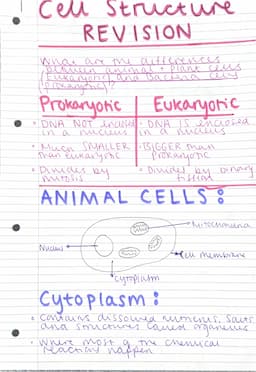 Cell Structure
REVISION
What are the differences
between animal + plant cells
(Eukaryotic) and bacteria cells
(prokaryotic)?
Prokaryotic Eukaryotic
• DNA NOT enclosed
in a nucleus
• DNA IS enclosed
in a nucleus
• Much SMALLER
than eukaryotic
• BIGGER than
prokaryotic
• Divides by
mitosis
• Divides by binary
fission
ANIMAL CELLS:
Mitochondria
Nucleus
Cell membrane
Cytoplasm
Cytoplasm:
• Contains dissolved nutrients, salts
and structures called organelles
• Where most of the chemical
reactions happen